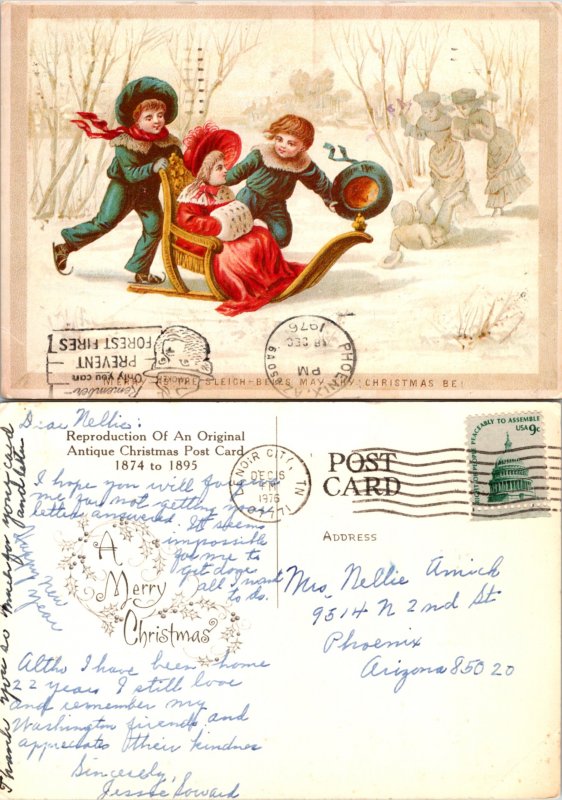 Remember
Only you can
PREVENT
FOREST FIRES!
PHOENIX,
PM
18 DEC
1976
MERRY SLEIGH-BELLS MAY CHRISTMAS BE!
Dear Nellie:
Reproduction Of An Original
Antique Christmas Post Card
1874 to 1895
I hope you will forgive
me for not getting your
letter answered. It seems
impossible
for me to
get done
all I want
to do.
A
Merry
Christmas
Altho I have been home
22 years I still love
and remember my
Washington friends and
appreciates their kindness
Sincerely,
Jessie Soward
Thank you so much for your card
and letter
New
Year
LENOIR CITY, TN
DEC 15
PM
1976
POST
CARD
PEACEABLY TO ASSEMBLE
USA 9c
ADDRESS
Mrs. Nellie Amick
9514 N 2nd St
Phoenix
Arizona 85020